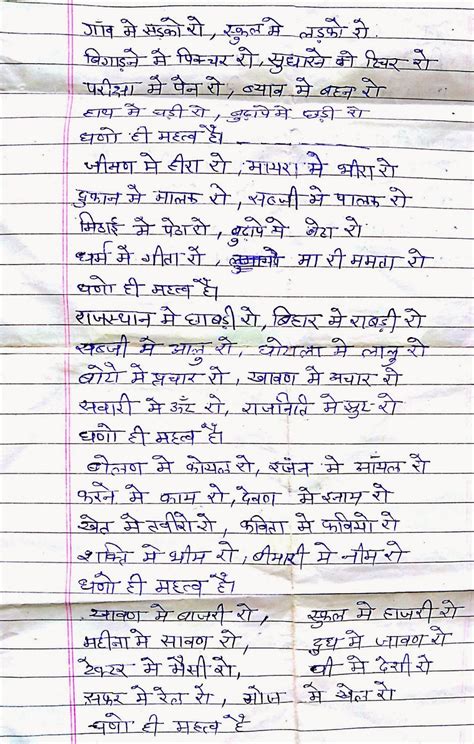 गाँव मे सड़को रो, स्कुल मे लड़को रो
बिगाड़ने मे पिक्चर रो, सुधारने मे टिचर रो
परीक्षा मे पेन रो, ब्याव मे बहन रो
हाथ मे घड़ी रो, बुढ़ापे मे छड़ी रो
घणो ही महत्व है।
जीमण मे हीरा रो, मायरा मे मीरा रो
दुकान मे मालक रो, सब्जी मे पालक रो
मिठाई मे पेठा रो, बुढ़ापे मे बेटा रो
धर्म मे गीता रो, मा री ममता रो
घणो ही महत्व है।
राजस्थान मे छाबड़ी रो, बिहार मे राबड़ी रो
सब्जी मे आलु रो, घोटाला मे लालु रो
वोटो मे प्रचार रो, खावण मे अचार रो
सवारी मे ऊँट रो, राजनिति मे झुठ रो
घणो ही महत्व है।
बोलण मे कोयल रो, इंजन मे ऑयल रो
करने मे काम रो, देवण मे इनाम रो
खेत मे कवियो रो, कविता मे कवियो रो
शक्ति मे भीम रो, बीमारी मे नीम रो
घणो ही महत्व है।
खावण मे बाजरी रो, स्कुल मे हाजरी रो
महीना मे सावण रो, दुध मे जावण रो
टेक्टर मे मैसी रो, घी मे देशी रो
सफर मे रेल रो, मे खेल रो
घणो ही महत्व है